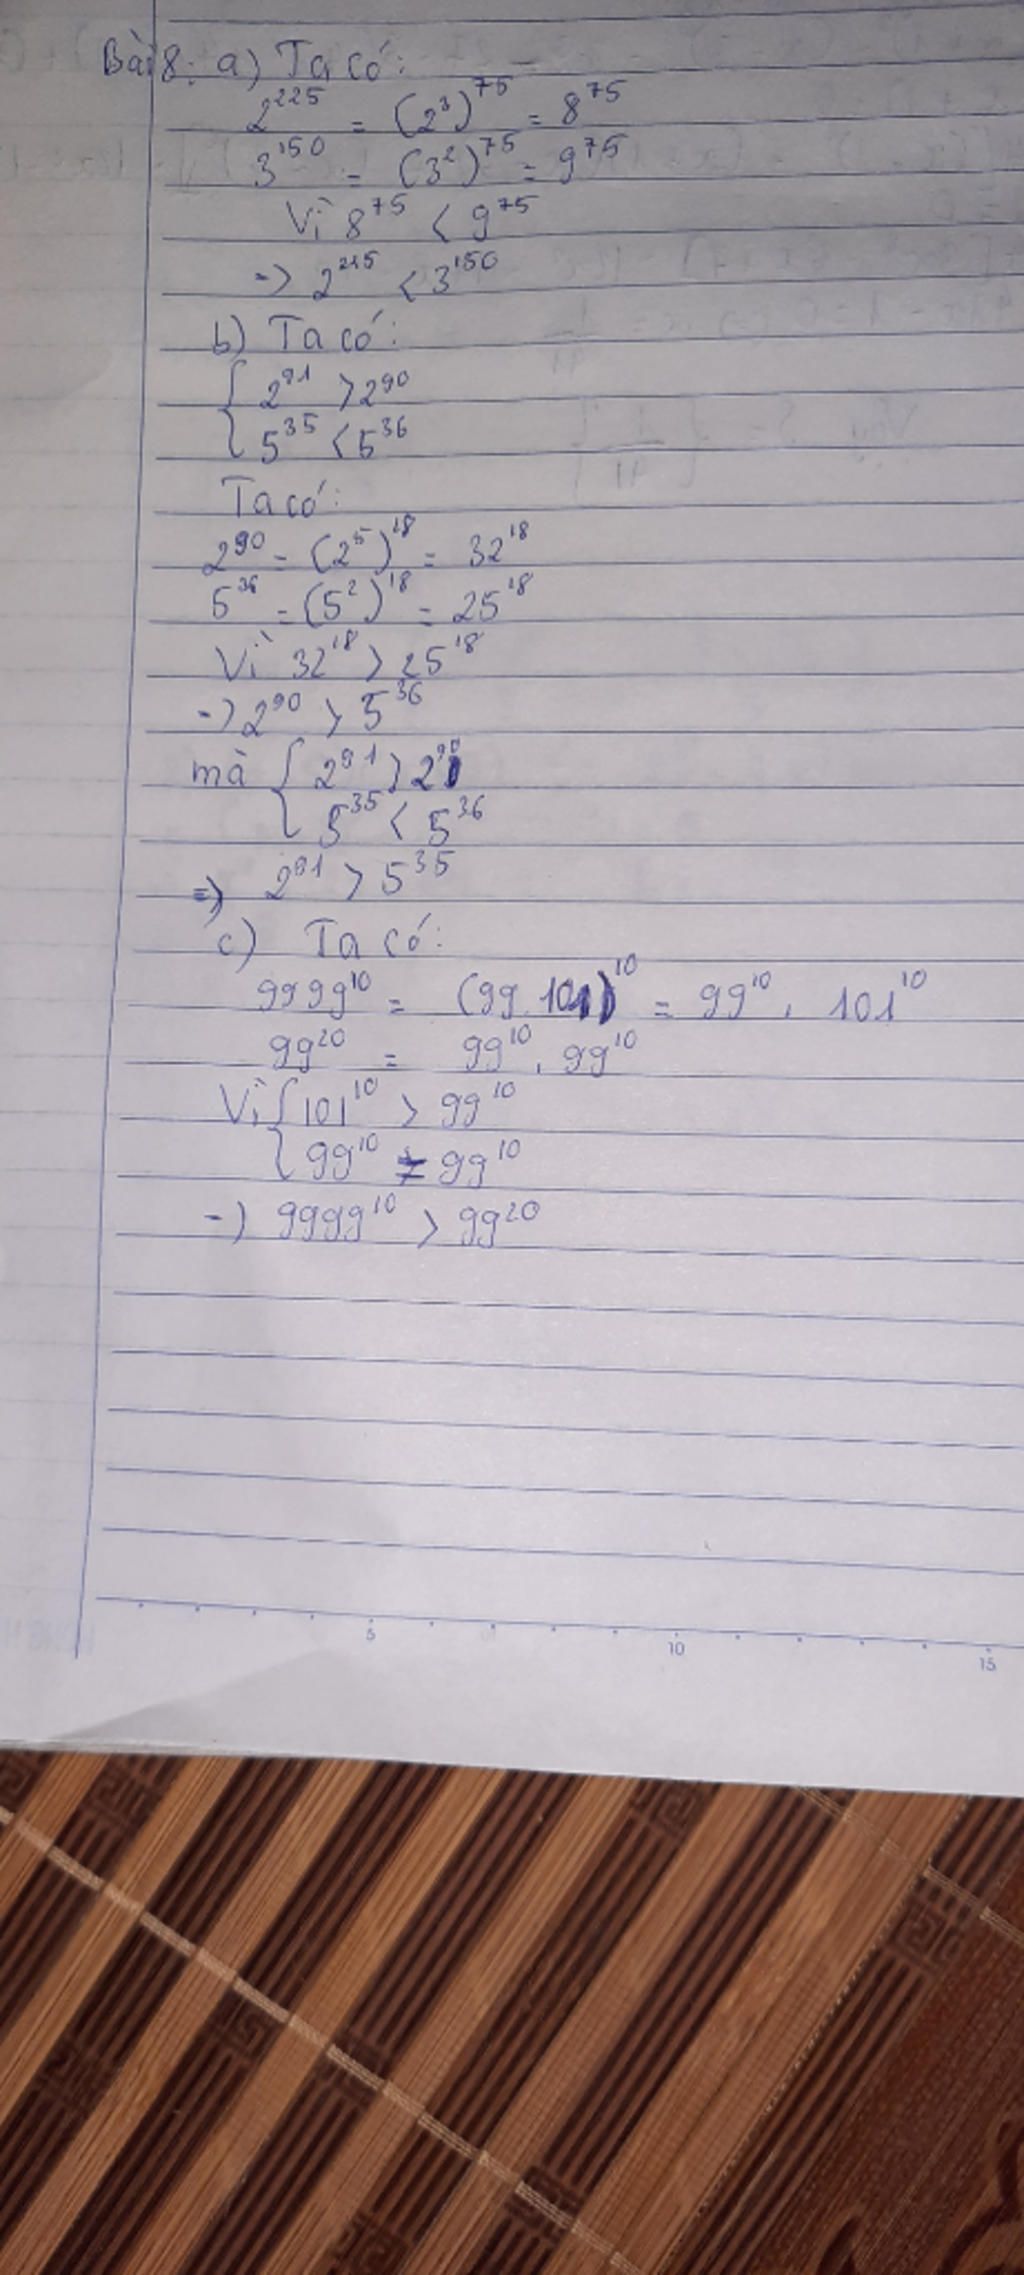 Bài 8: a) Ta có:
2^225 = (2^3)^75 = 8^75
3^150 = (3^2)^75 = 9^75
Vì 8^75 < 9^75
=> 2^225 < 3^150
b) Ta có:
{ 2^91 > 2^90
5^35 < 5^36
Ta có:
2^90 = (2^5)^18 = 32^18
5^36 = (5^2)^18 = 25^18
Vì 32^18 > 25^18
=> 2^90 > 5^36
mà { 2^91 > 2^90
5^35 < 5^36
=> 2^91 > 5^35
c) Ta có:
9999^10 = (99.101)^10 = 99^10 . 101^10
99^20 = 99^10 . 99^10
Vì { 101^10 > 99^10
99^10 = 99^10
=> 9999^10 > 99^20
5 10 15